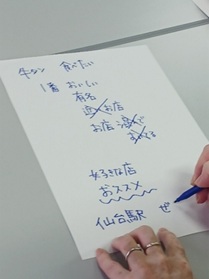 牛タン 食べたい
1番 おいしい
有名
お店
お店
好きな店
おススメ
仙台駅 ぜ